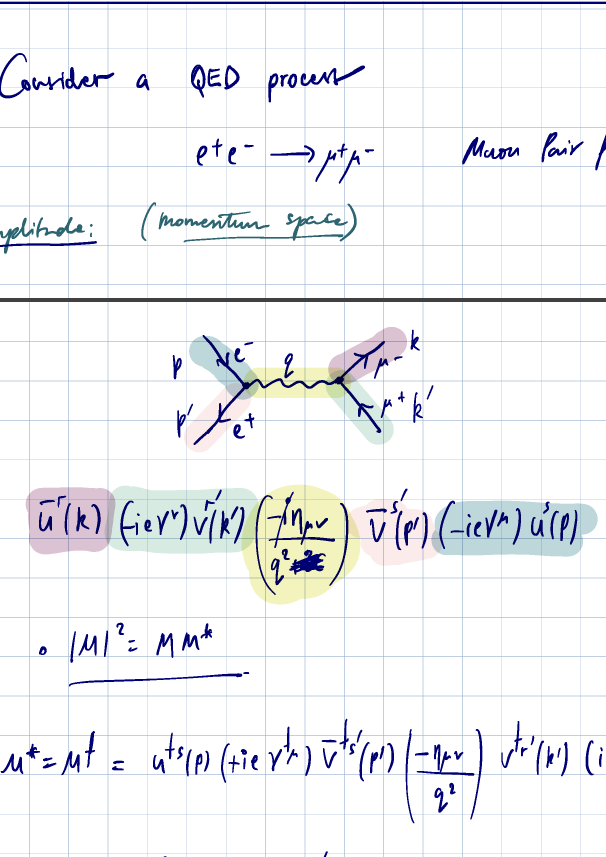 Consider a QED process
e⁺e⁻ ⟶ μ⁺μ⁻ Muon Pair
mplitude: (momentum space)
p e⁻ q μ⁻ k
p' e⁺ μ⁺ k'
ūʳ(k) (-ieγᵛ) vʳ'(k') (-iη_μν / q²) v̄ˢ'(p') (-ieγᵘ) uˢ(p)
• |M|² = M M*
M* = M† = u†ˢ(p) (+ieγ†ᵘ) v̄†ˢ'(p') (-η_μν / q²) v†ʳ'(k') (i